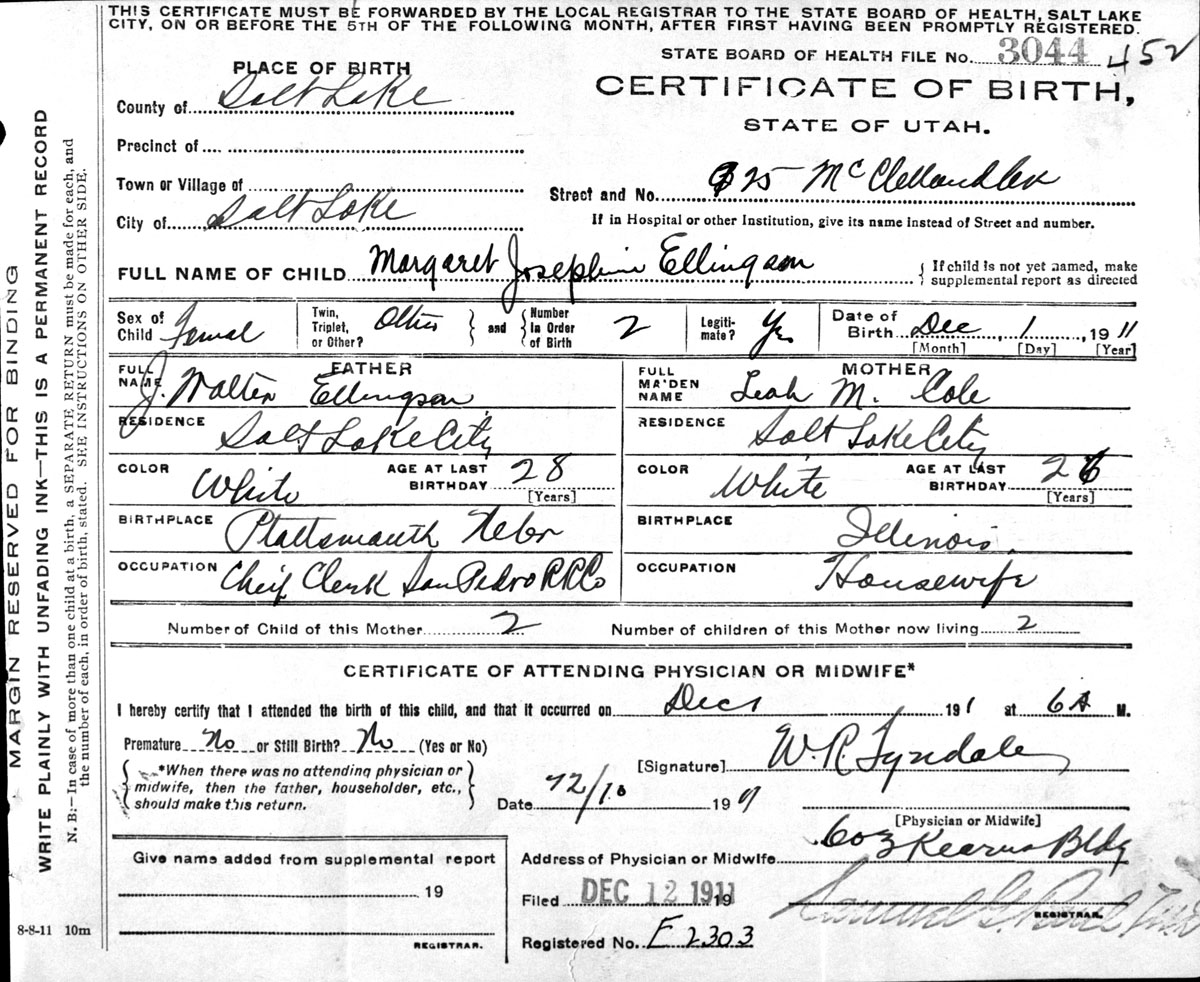 THIS CERTIFICATE MUST BE FORWARDED BY THE LOCAL REGISTRAR TO THE STATE BOARD OF HEALTH, SALT LAKE
CITY, ON OR BEFORE THE 5TH OF THE FOLLOWING MONTH, AFTER FIRST HAVING BEEN PROMPTLY REGISTERED.
STATE BOARD OF HEALTH FILE No. 3044 452
CERTIFICATE OF BIRTH,
STATE OF UTAH.
PLACE OF BIRTH
County of Salt Lake
Precinct of
Town or Village of
City of Salt Lake
Street and No. 925 McClelland
If in Hospital or other Institution, give its name instead of Street and number.
FULL NAME OF CHILD Margaret Josephine Ellingson
{ If child is not yet named, make
supplemental report as directed
Sex of Child Femal
Twin, Triplet, or Other?
and
Number in Order of Birth 2
Legiti-mate? Yes
Date of Birth Dec 1, 1911
[Month] [Day] [Year]
FATHER
FULL NAME J. Walter Ellingson
RESIDENCE Salt Lake City
COLOR White
AGE AT LAST BIRTHDAY 28
[Years]
BIRTHPLACE Plattsmouth Nebr
OCCUPATION Cheif Clerk San Pedro R.R.Co
MOTHER
FULL MAIDEN NAME Leah M. Cole
RESIDENCE Salt Lake City
COLOR White
AGE AT LAST BIRTHDAY 26
[Years]
BIRTHPLACE Illinois
OCCUPATION Housewife
Number of Child of this Mother 2
Number of children of this Mother now living 2
CERTIFICATE OF ATTENDING PHYSICIAN OR MIDWIFE*
I hereby certify that I attended the birth of this child, and that it occurred on Dec 1 191 1 at 6 A M.
Premature No or Still Birth? No (Yes or No)
{ *When there was no attending physician or
midwife, then the father, householder, etc.,
should make this return. }
[Signature] W. R. Tyndale
Date 12/10 19
[Physician or Midwife]
Address of Physician or Midwife 603 Kearns Bldg
Give name added from supplemental report
19
REGISTRAR.
Filed DEC 12 1911 19
Samuel G. Paul
REGISTRAR.
Registered No. E 2303
8-8-11 10m
MARGIN RESERVED FOR BINDING
WRITE PLAINLY WITH UNFADING INK—THIS IS A PERMANENT RECORD
N. B.—In case of more than one child at a birth, a SEPARATE RETURN must be made for each, and
the number of each, in order of birth, stated. SEE INSTRUCTIONS ON OTHER SIDE.